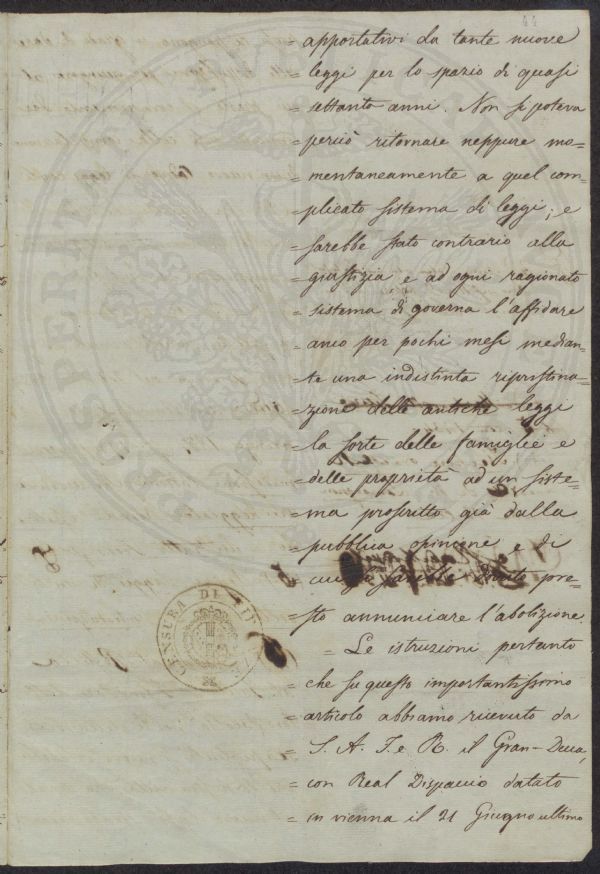 44
= apportativi da tante nuove
= leggi per lo spazio di quasi
= settanta anni. Non si poteva
= perciò ritornare neppure mo=
= mentaneamente a quel com=
= plicato sistema di leggi; e
= sarebbe stato contrario alla
= giustizia e ad ogni ragionato
= sistema di governa l'affidare
= anco per pochi mesi median=
= te una indistinta ripristina=
= zione delle antiche leggi
= la sorte delle famiglie e
= delle proprietà ad un siste=
= ma proscritto già dalla
= pubblica opinione e di
= cui si sarebbe pre=
= sto annunciare l'abolizione.
= Le istruzioni pertanto
= che su questo importantissimo
= articolo abbiamo ricevuto da
= S. A. I. e R. il Gran-Duca,
= con Real Dispaccio datato
= in vienna il 21 Giugno ultimo
CENSURA DI